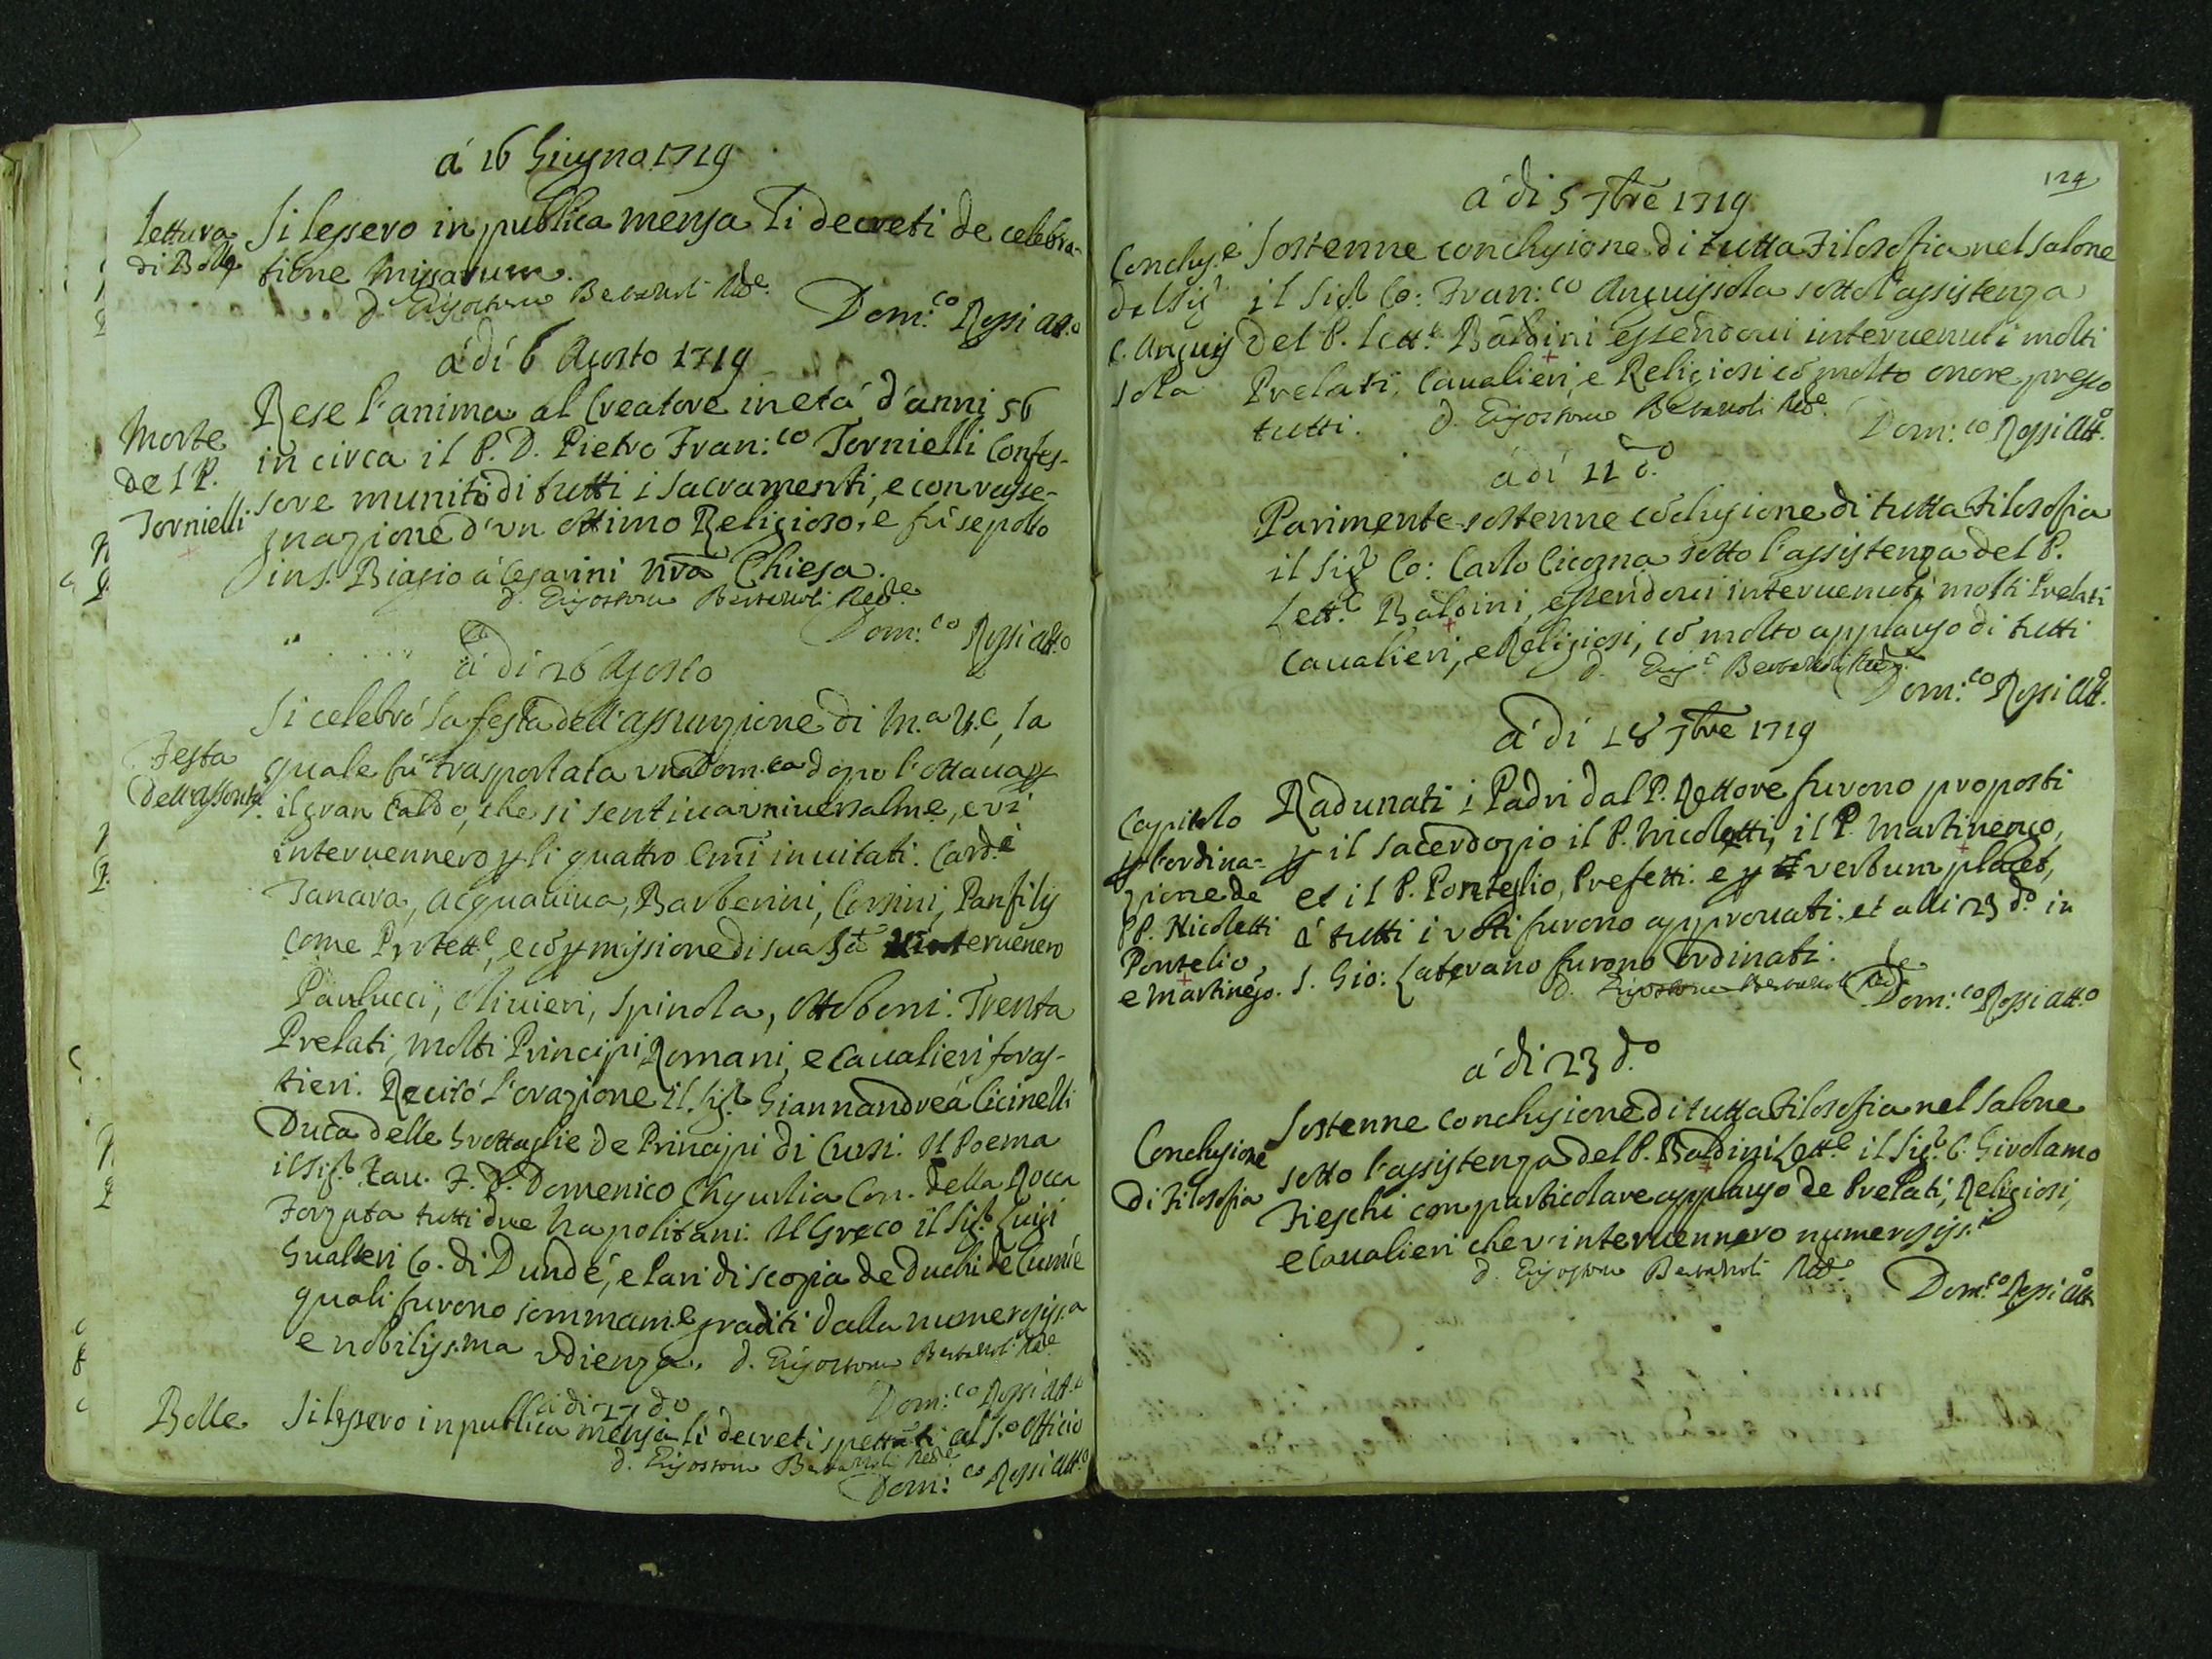 á 16 Giugno 1719
Lettura di Bolle
Si lessero in publica mensa li decreti de celebra-
tione Missarum.
Dom:co Rossi att.o
á di 6 Agosto 1719
Morte
del P.
Tornielli
Rese l'anima al Creatore in etá d'anni 56
in circa il P. D. Pietro Fran:co Tornielli Confes-
sore munito di tutti i Sacramenti, e con rasse-
gnazione d'un ottimo Religioso, e fú sepolto
in S. Biagio á Cesarini nr̃a Chiesa.
Dom:co Rossi att.o
á di 26 Agosto
Festa
dell'Assonta
Si celebró la festa dell'Assunzione di M.a V.e, la
quale fú trasportata una dom.ca dopo l'ottaua p
il gran caldo, che si sentiua vniuersalm.e, e vi
interuennero p li quattro Em̃i inuitati. Card.i
Tanara, Acquauiua, Barberini, Corsini, Panfilij
come Protett.e, e cõ p missione di sua S.tá interuenero
Paulucci, Oliuieri, Spinola, Ottoboni. Trenta
Prelati, molti Principi Romani, e Caualieri foras-
tieri. Recitó l'orazione il Sig.r Giannandrea Cicinelli
Duca delle Grottaglie de Principi di Cursi. Il Poema
il Sig.r Cau. F. D. Domenico Chyurlia Con. della Rocca
Forzata tutti due Napolitani. Il Greco il Sig.r Luigi
Gualtieri Co. di Dundé, e Pari di Scozia de Duchi de Cumie
quali furono sommam.e graditi dalla numerosiss.a
e nobiliss.ma vdienza.
Dom:co Rossi att.o
á di 27 d.o
Bolle
Si lessero in publica mensa li decreti spettanti al S.o Officio
Dom:co Rossi att.o
124
á di 5 7bre 1719
Conclus.e
del Sig.r
C. Anguis
sola
Sostenne conclusione di tutta Filosofia nel Salone
il Sig.r Co: Fran:co Anguissola sotto l'assistenza
del P. Lett.e Baldini essendoui interuenuti molti
Prelati, Caualieri, e Religiosi cõ molto onore presso
tutti.
Dom:co Rossi att.o
á di 11 d.o
Parimente sostenne cõclusione di tutta Filosofia
il Sig.r Co: Carlo Cicogna sotto l'assistenza del P.
Lett.e Baldini, essendoui interuenuti molti Prelati
Caualieri, e Religiosi, cõ molto applauso di tutti
Dom:co Rossi att.o
á di 18 7bre 1719
Capitolo
p l'ordina-
zione de
PP. Nicoletti
Pontelio,
e Martinẽgo.
Radunati i Padri dal P. Rettore furono proposti
p il sacerdozio il P. Nicoletti, il P. Martinengo,
et il P. Ponteglio, Prefetti. e p verbum placet,
á tutti i voti furono approuati. et alli 23 d.o in
S. Gio: Laterano furono ordinati.
Dom:co Rossi att.o
á di 23 d.o
Conclusione
di Filosofia
Sostenne conclusione di tutta Filosofia nel Salone
sotto l'assistenza del P. Baldini Lett.e il Sig.r C. Girolamo
Fieschi con particolare applauso de Prelati, Religiosi,
e Caualieri che v'interuennero numerosiss.i
Dom:co Rossi att.o